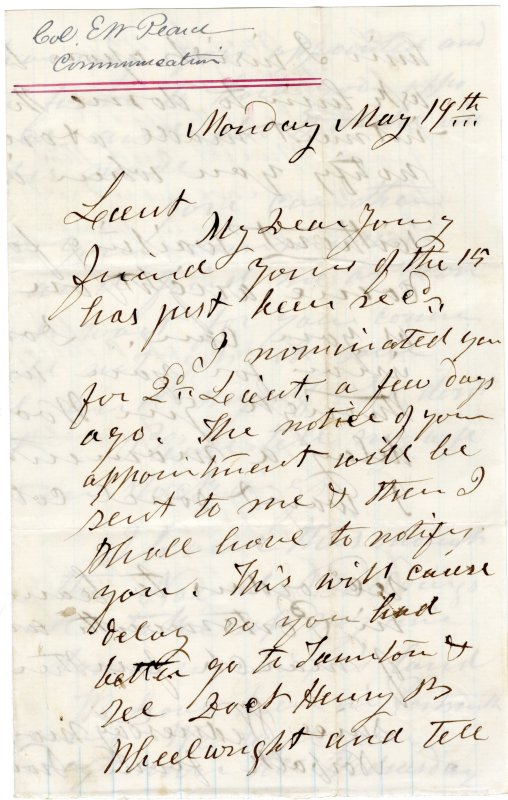 Col. E W Pearce
Communication
Monday May 19th
Lieut
My Dear Young
friend Yours of the 15
has just been recd.
I nominated you
for 2d. Lieut. a few days
ago. The notice of your
appointment will be
sent to me & then I
shall have to notify
you. This will cause
delay so you had
better go to Taunton &
see Doct Henry B
Wheelwright and tell